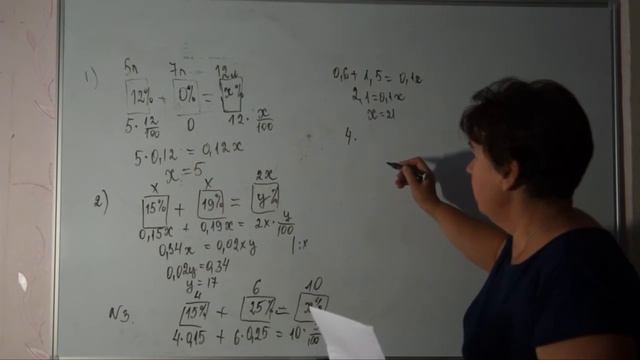 1)
5л 7л 12л
12% + 0% = x%
5 · 12/100 0 12 · x/100
5 · 0,12 = 0,12x
x = 5
2)
x x 2x
15% + 19% = y%
0,15x + 0,19x = 2x · y/100
0,34x = 0,02xy |:x
0,02y = 0,34
y = 17
N3.
4 6 10
15% + 25% = x%
4·0,15 + 6·0,25 = 10 · /100
0,6 + 1,5 = 0,1x
2,1 = 0,1x
x = 21
4.